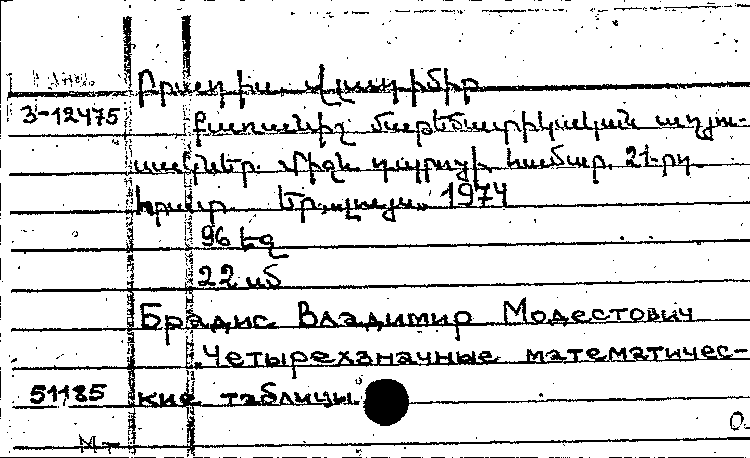 Բրադիս, Վլադիմիր
3-12475 Քառանիշ մաթեմատիկական աղյու-
սակներ. Միջն. դպրոցի համար. 21-րդ
հրատ. Եր., «Լույս», 1974
96 էջ
22 սմ
Брадис Владимир Модестович
Четырехзначные математичес-
51185 кие таблицы
М-
О.